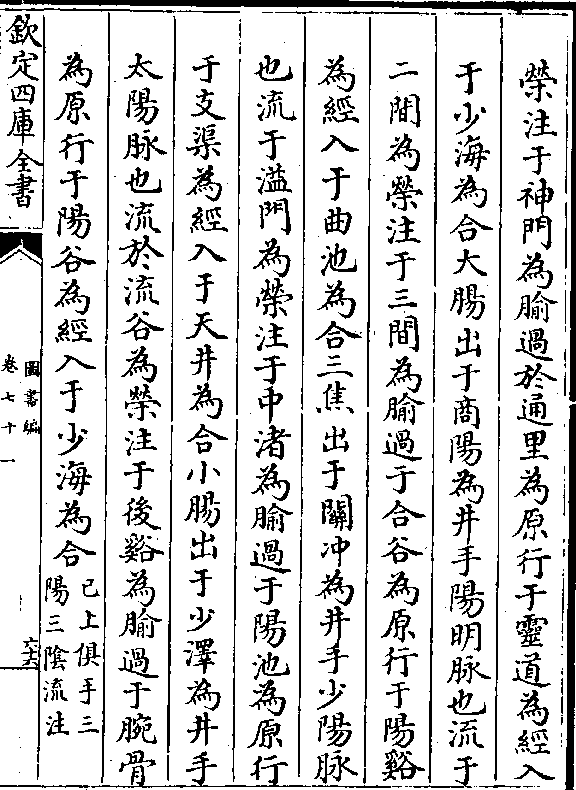 滎注于神門為腧過於通里為原行于靈道為經入
于少海為合大腸出于商陽為井手陽明脉也流于
二間為滎注于三間為腧過于合谷為原行于陽谿
為經入于曲池為合三焦出于關冲為井手少陽脉
也流于溢門為滎注于中渚為腧過于陽池為原行
于支渠為經入于天井為合小腸出于少澤為井手
太陽脉也流於流谷為滎注于後谿為腧過于腕骨
為原行于陽谷為經入于少海為合已上俱手三
陽三陰流注
欽定四庫全書
圖書編
卷七十一
六十六